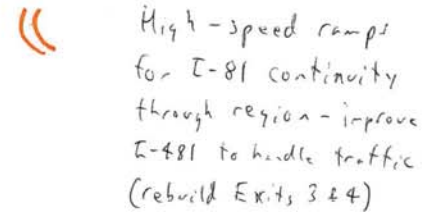 High-speed ramps
for I-81 continuity
through region - improve
I-481 to handle traffic
(rebuild Exits 3 & 4)